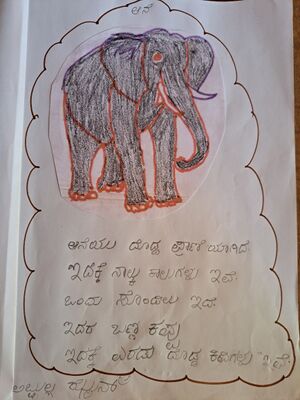 ಆನೆ
ಆನೆಯು ದೊಡ್ಡ ಪ್ರಾಣಿಯಾಗಿದೆ.
ಇದಕ್ಕೆ ನಾಲ್ಕು ಕಾಲುಗಳು ಇವೆ.
ಒಂದು ಸೊಂಡಿಲು ಇದೆ
ಇದರ ಬಣ್ಣ ಕಪ್ಪು
ಇದಕ್ಕೆ ಎರಡು ದೊಡ್ಡ ಕಿವಿಗಳು ಇವೆ.